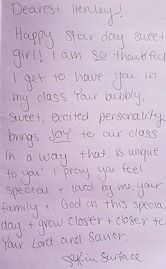 Dearest Henley!
Happy star day sweet
girl! I am SO thankful
I get to have you in
my class. Your bubbly,
sweet, excited personality
brings JOY to our class
in a way that is unique
to you! I pray you feel
special + loved by me, your
family + God on this special
day, + grow closer + closer to
Your Lord and Savior.
Kim Surface